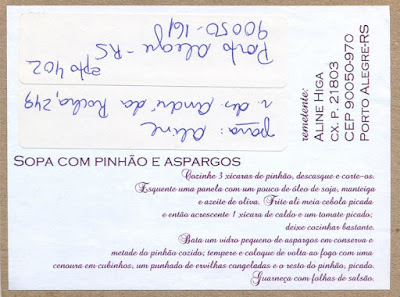 para: Aline
r. des. André da Rocha, 249
apto 402
Porto Alegre-RS
90050-161
remetente:
ALINE HIGA
CX. P. 21803
CEP 90050-970
PORTO ALEGRE-RS
SOPA COM PINHÃO E ASPARGOS
Cozinhe 3 xícaras de pinhão, descasque e corte-os.
Esquente uma panela com um pouco de óleo de soja, manteiga
e azeite de oliva. Frite ali meia cebola picada
e então acrescente 1 xícara de caldo e um tomate picado;
deixe cozinhar bastante.
Bata um vidro pequeno de aspargos em conserva e
metade do pinhão cozido; tempere e coloque de volta ao fogo com uma
cenoura em cubinhos, um punhado de ervilhas congeladas e o resto do pinhão, picado.
Guarneça com folhas de salsão.